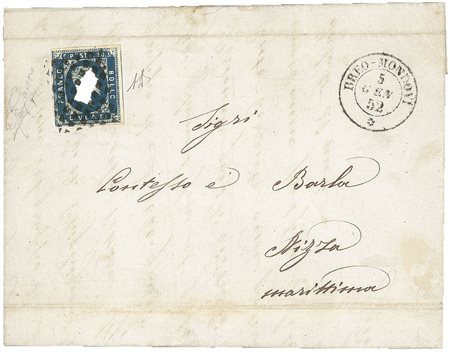 FRANCO POST E BOLLO
C. VENTI
BREO-MONDOVI
5
GEN
52
Sigri
Contesso e Barla
Nizza
marittima